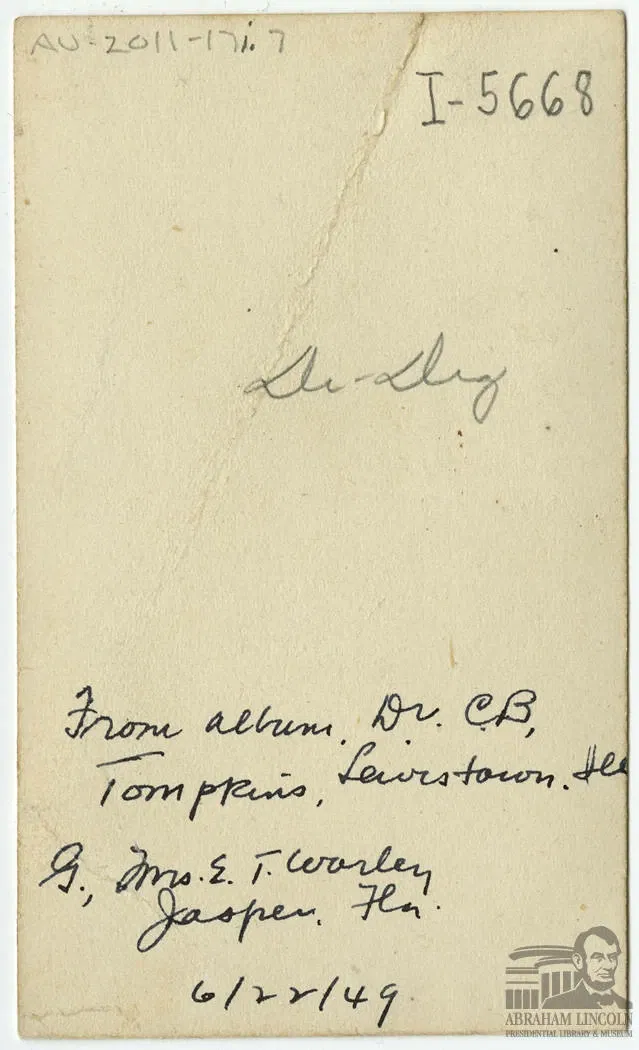 AV-2011-171.7
I-5668
Dr-Drg
From album, Dr. C.B,
Tompkins, Lewistown, Ill
G., Mrs. E. T. Worley
Jasper. Fla.
6/22/49
ABRAHAM LINCOLN
PRESIDENTIAL LIBRARY & MUSEUM